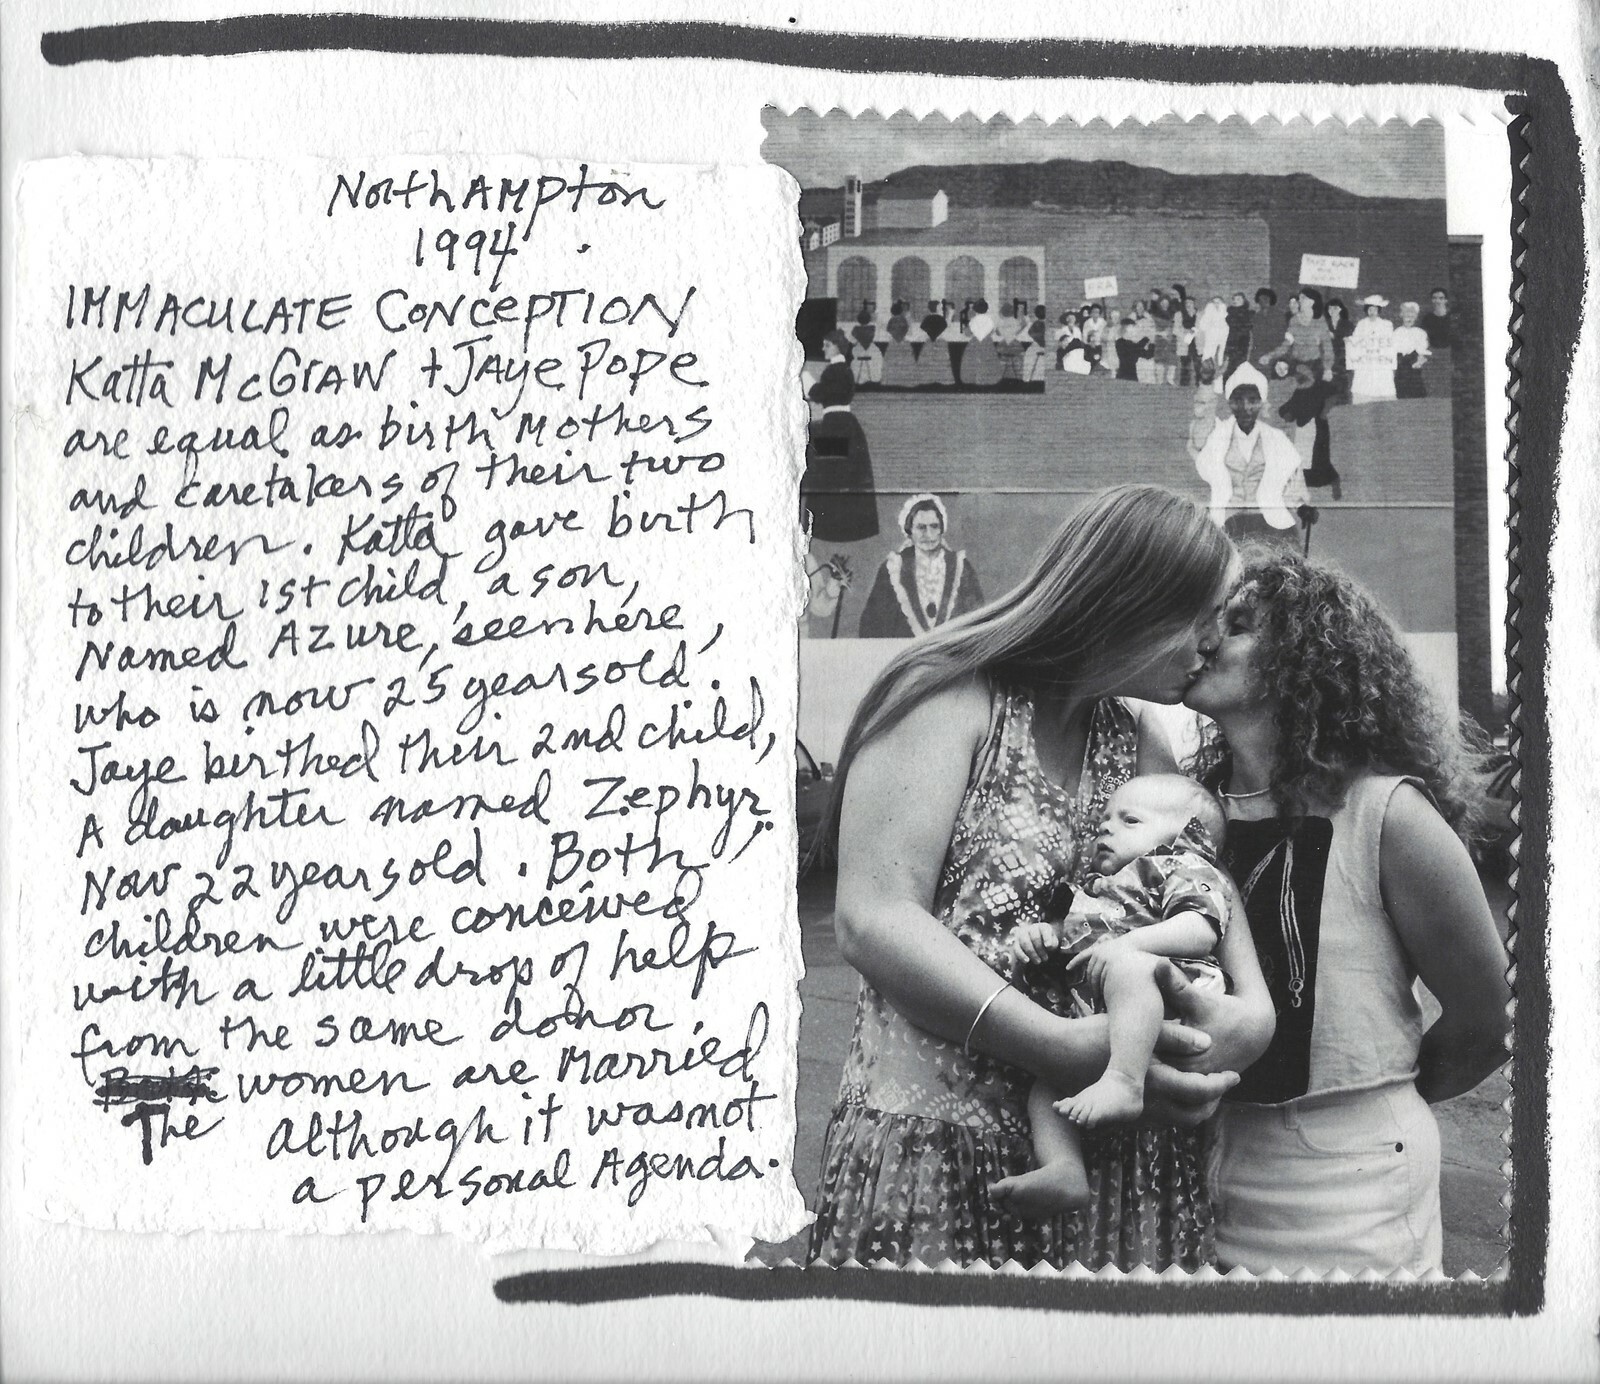 Northampton
1994
IMMACULATE CONCEPTION
Katta McGraw + Jaye Pope
are equal as birth Mothers
and caretakers of their two
children. Katta gave birth
to their 1st child, a son,
Named Azure, seen here,
who is now 25 years old.
Jaye birthed their 2nd child,
A daughter named Zephyr,
Now 22 years old. Both
children were conceived
with a little drop of help
from the same donor.
The women are Married
although it was not
a personal Agenda.
ERA
VOTES